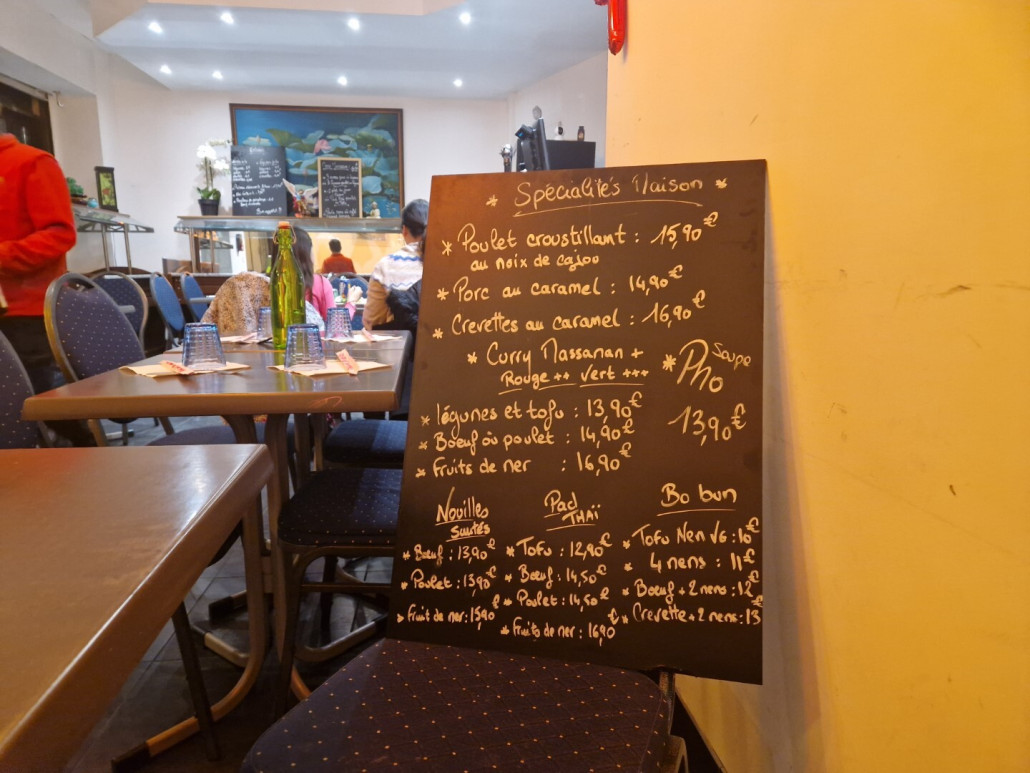 * Spécialités Maison *
* Poulet croustillant : 15,90€
au noix de cajou
* Porc au caramel : 14,90€
* Crevettes au caramel : 16,90€
* Curry Massaman +
Rouge ++ Vert +++
* légumes et tofu : 13,90€
* Boeuf ou poulet : 14,90€
* Fruits de mer : 16,90€
* Pho Soupe
13,90€
Nouilles
Sautés
* Boeuf : 13,90€
* Poulet : 13,90€
* Fruit de mer : 15,90€
Pad
THAÏ
* Tofu : 12,90€
* Boeuf : 14,50€
* Poulet : 14,50€
* Fruits de mer : 16,90€
Bo bun
* Tofu Nem VG : 10€
* 4 nems : 11€
* Boeuf + 2 nems : 12€
* Crevette + 2 nems : 13€